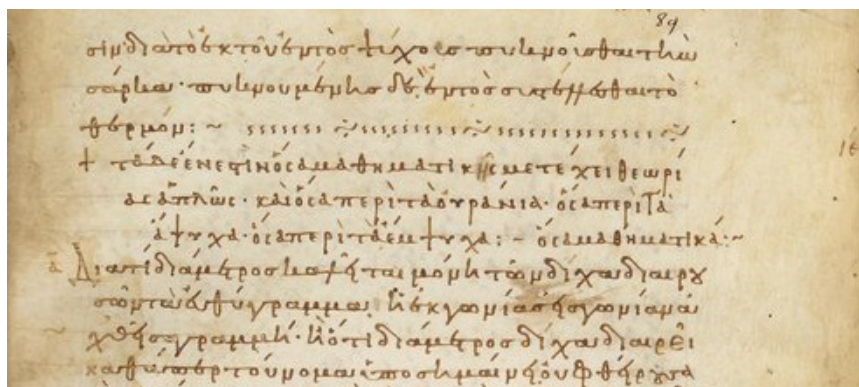 89
σιν διὰ τὸ ἐκ τοῦ ἐντὸς ψύχους πυκνοῦσθαι τὴν
σάρκα· πυκνουμένης δὲ ἐντὸς τὸ
θερμόν:~
+ τάδε ἔνεστιν ὅσα μαθηματικῆς μετέχει θεωρί
ας ἁπλῶς· καὶ ὅσα περὶ τὰ οὐράνια· ὅσα περὶ τὰ
ἄψυχα· ὅσα περὶ τὰ ἔμψυχα:~ ὅσα μαθηματικά:~
ᾱ Διατί διάμετρος καλεῖται μόνη τῶν δίχα διαιρου
σῶν τὰ εὐθύγραμμα ἡ ἐκ γωνίας εἰς γωνίαν ἀ
χθεῖσα γραμμή· ἢ ὅτι διάμετρος δίχα διαιρεῖ
καθάπερ τοὔνομα σημαίνει οὐ φθείρουσα